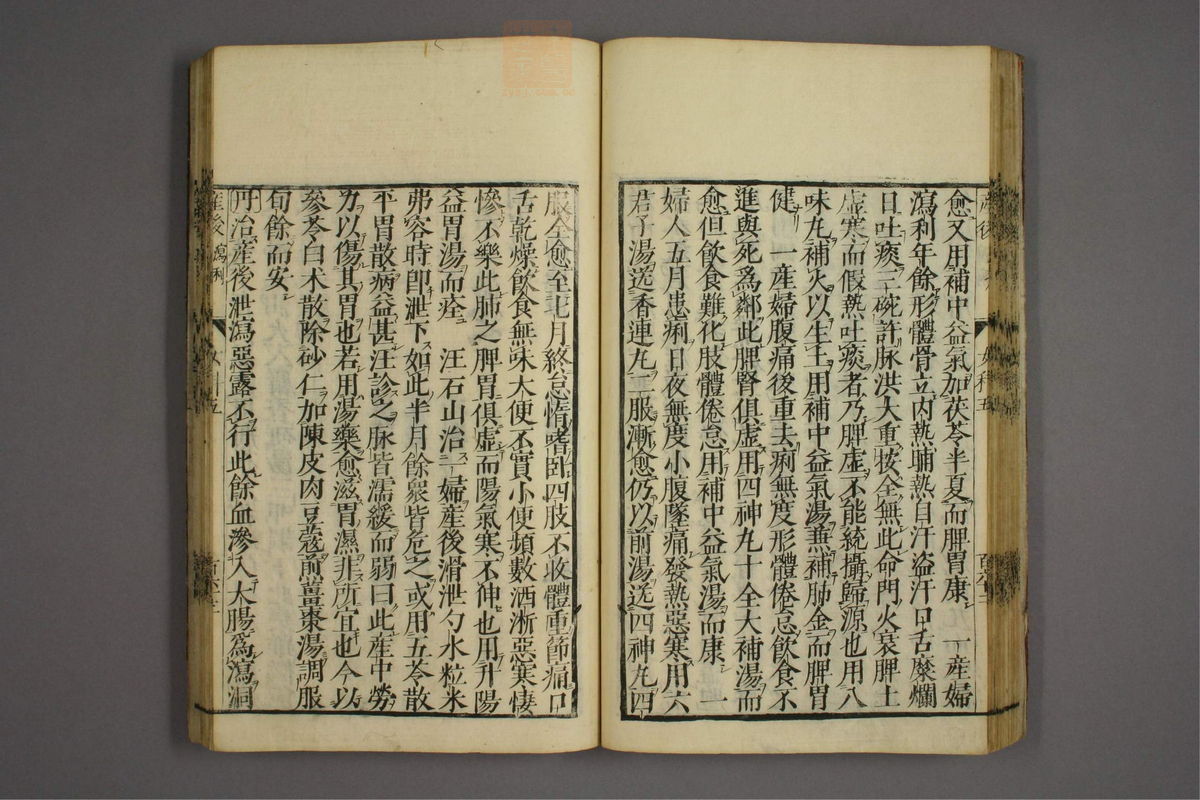 愈又用補中益氣加茯苓半夏而脾胃康 一產婦
瀉利年餘形體骨立內熱晡熱自汗盜汗口舌糜爛
日吐痰三碗許脉洪大重按全無此命門火衰脾土
虛寒而假熱吐痰者乃脾虛不能統攝歸源也用八
味丸補火以生土用補中益氣湯兼補肺金而脾胃
健 一產婦腹痛後重去痢無度形體倦怠飲食不
進與死爲鄰此脾腎俱虛用四神丸十全大補湯而
愈但飲食難化肢體倦怠用補中益氣湯而康 一
婦人五月患痢日夜無度小腹墜痛發熱惡寒用六
君子湯送香連丸二服漸愈仍以前湯送四神丸四
服全愈至七月終怠惰嗜卧四肢不收體重節痛口
舌乾燥飲食無味大便不實小便頻數洒淅惡寒悽
慘不樂此肺之脾胃俱虛而陽氣寒不伸也用升陽
益胃湯而痊 汪石山治一婦產後滑泄勺水粒米
弗容時即泄下如此半月餘衆皆危之或用五苓散
平胃散病益甚汪診之脉皆濡緩而弱曰此產中勞
力以傷其胃也若用湯藥愈滋胃濕非所宜也今以
參苓白朮散除砂仁加陳皮肉豆蔻煎薑棗湯調服
旬餘而安
丹治產後泄瀉惡露不行此餘血滲入大腸爲瀉洞
產後 瀉痢